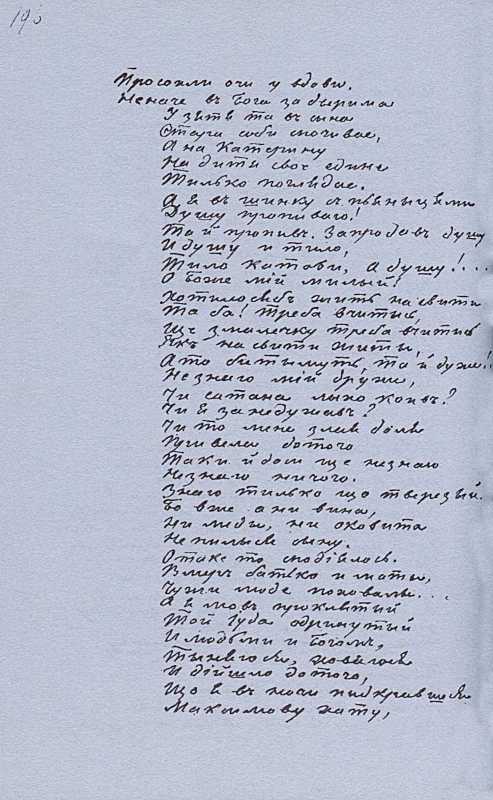 195
Просохли очи у вдовы.
Неначе въ Бога за дверима
У зятя та въ сына
Стара соби спочивае,
А на Катерину
На дитя свое едине
Тилько поглядае.
А я въ шинку съ пьяныцями
Душу пропиваю!
Та й пропивъ. Запродавъ душу
И душу и тило,
Тило катови, а душу!...
О Боже мій милый!
Хотилось бъ жить на свити
Та ба! треба вчитись,
Ще змалечку треба вчитись
Якъ на свити жыты,
А то бытымуть, та й дуже!
Незнаю мій друже,
Чи сатана лыхо коивъ?
Чи я занедужавъ?
Чи то мене злая доля
Привела до того
Таки й доси ще незнаю
Незнаю ничого.
Знаю тилько що тверезый
Бо вже а ни вина,
Ни меду, ни оковита
Непилыся сыну.
Отаке то сподіялось.
Вмеръ батько и маты,
Чужи люде поховалы...
А я мовъ проклятый
Той Іуда одринутый
И людьми и Богомъ,
Тыняюся, ховаюся
И дійшло до того,
Що я въ ночи пидкравшыся
Максимову хату,